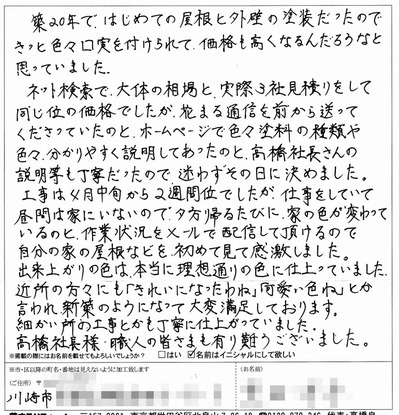 築20年で、はじめての屋根と外壁の塗装だったので
きっと色々口実を付けられて、価格も高くなるんだろうなと
思っていました。
ネット検索で、大体の相場と、実際3社見積りをして
同じ位の価格でしたが、花まる通信を前から送って
くださっていたのと、ホームページで色々塗料の種類や
色々、分かりやすく説明してあったのと、高橋社長さんの
説明等も丁寧だったので、迷わずその日に決めました。
工事は4月中旬から2週間位でしたが、仕事をしていて
昼間は家にいないので、夕方帰るたびに、家の色が変わって
いるのと、作業状況をメールで配信して頂けるので
自分の家の屋根などを、初めて見て感激しました。
出来上がりの色は、本当に理想通りの色に仕上っていました。
近所の方々にも「きれいになったわね」「可愛い色ね」とか
言われ、新築のようになって大変満足しております。
細かい所の工事とかも丁寧に仕上がっていました。
高橋社長様・職人の皆さまも有り難うございました。
※掲載の際にはお名前を載せてもよろしいでしょうか? □はい ☑名前はイニシャルにして欲しい
※市・区以降の町名・番地は見えないように加工致します
(ご住所) 〒
(お名前)
川崎市